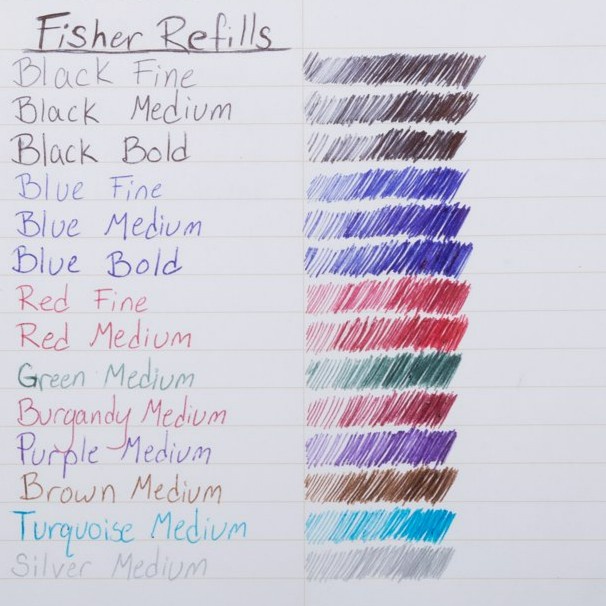 Fisher Refills
Black Fine
Black Medium
Black Bold
Blue Fine
Blue Medium
Blue Bold
Red Fine
Red Medium
Green Medium
Burgandy Medium
Purple Medium
Brown Medium
Turquoise Medium
Silver Medium